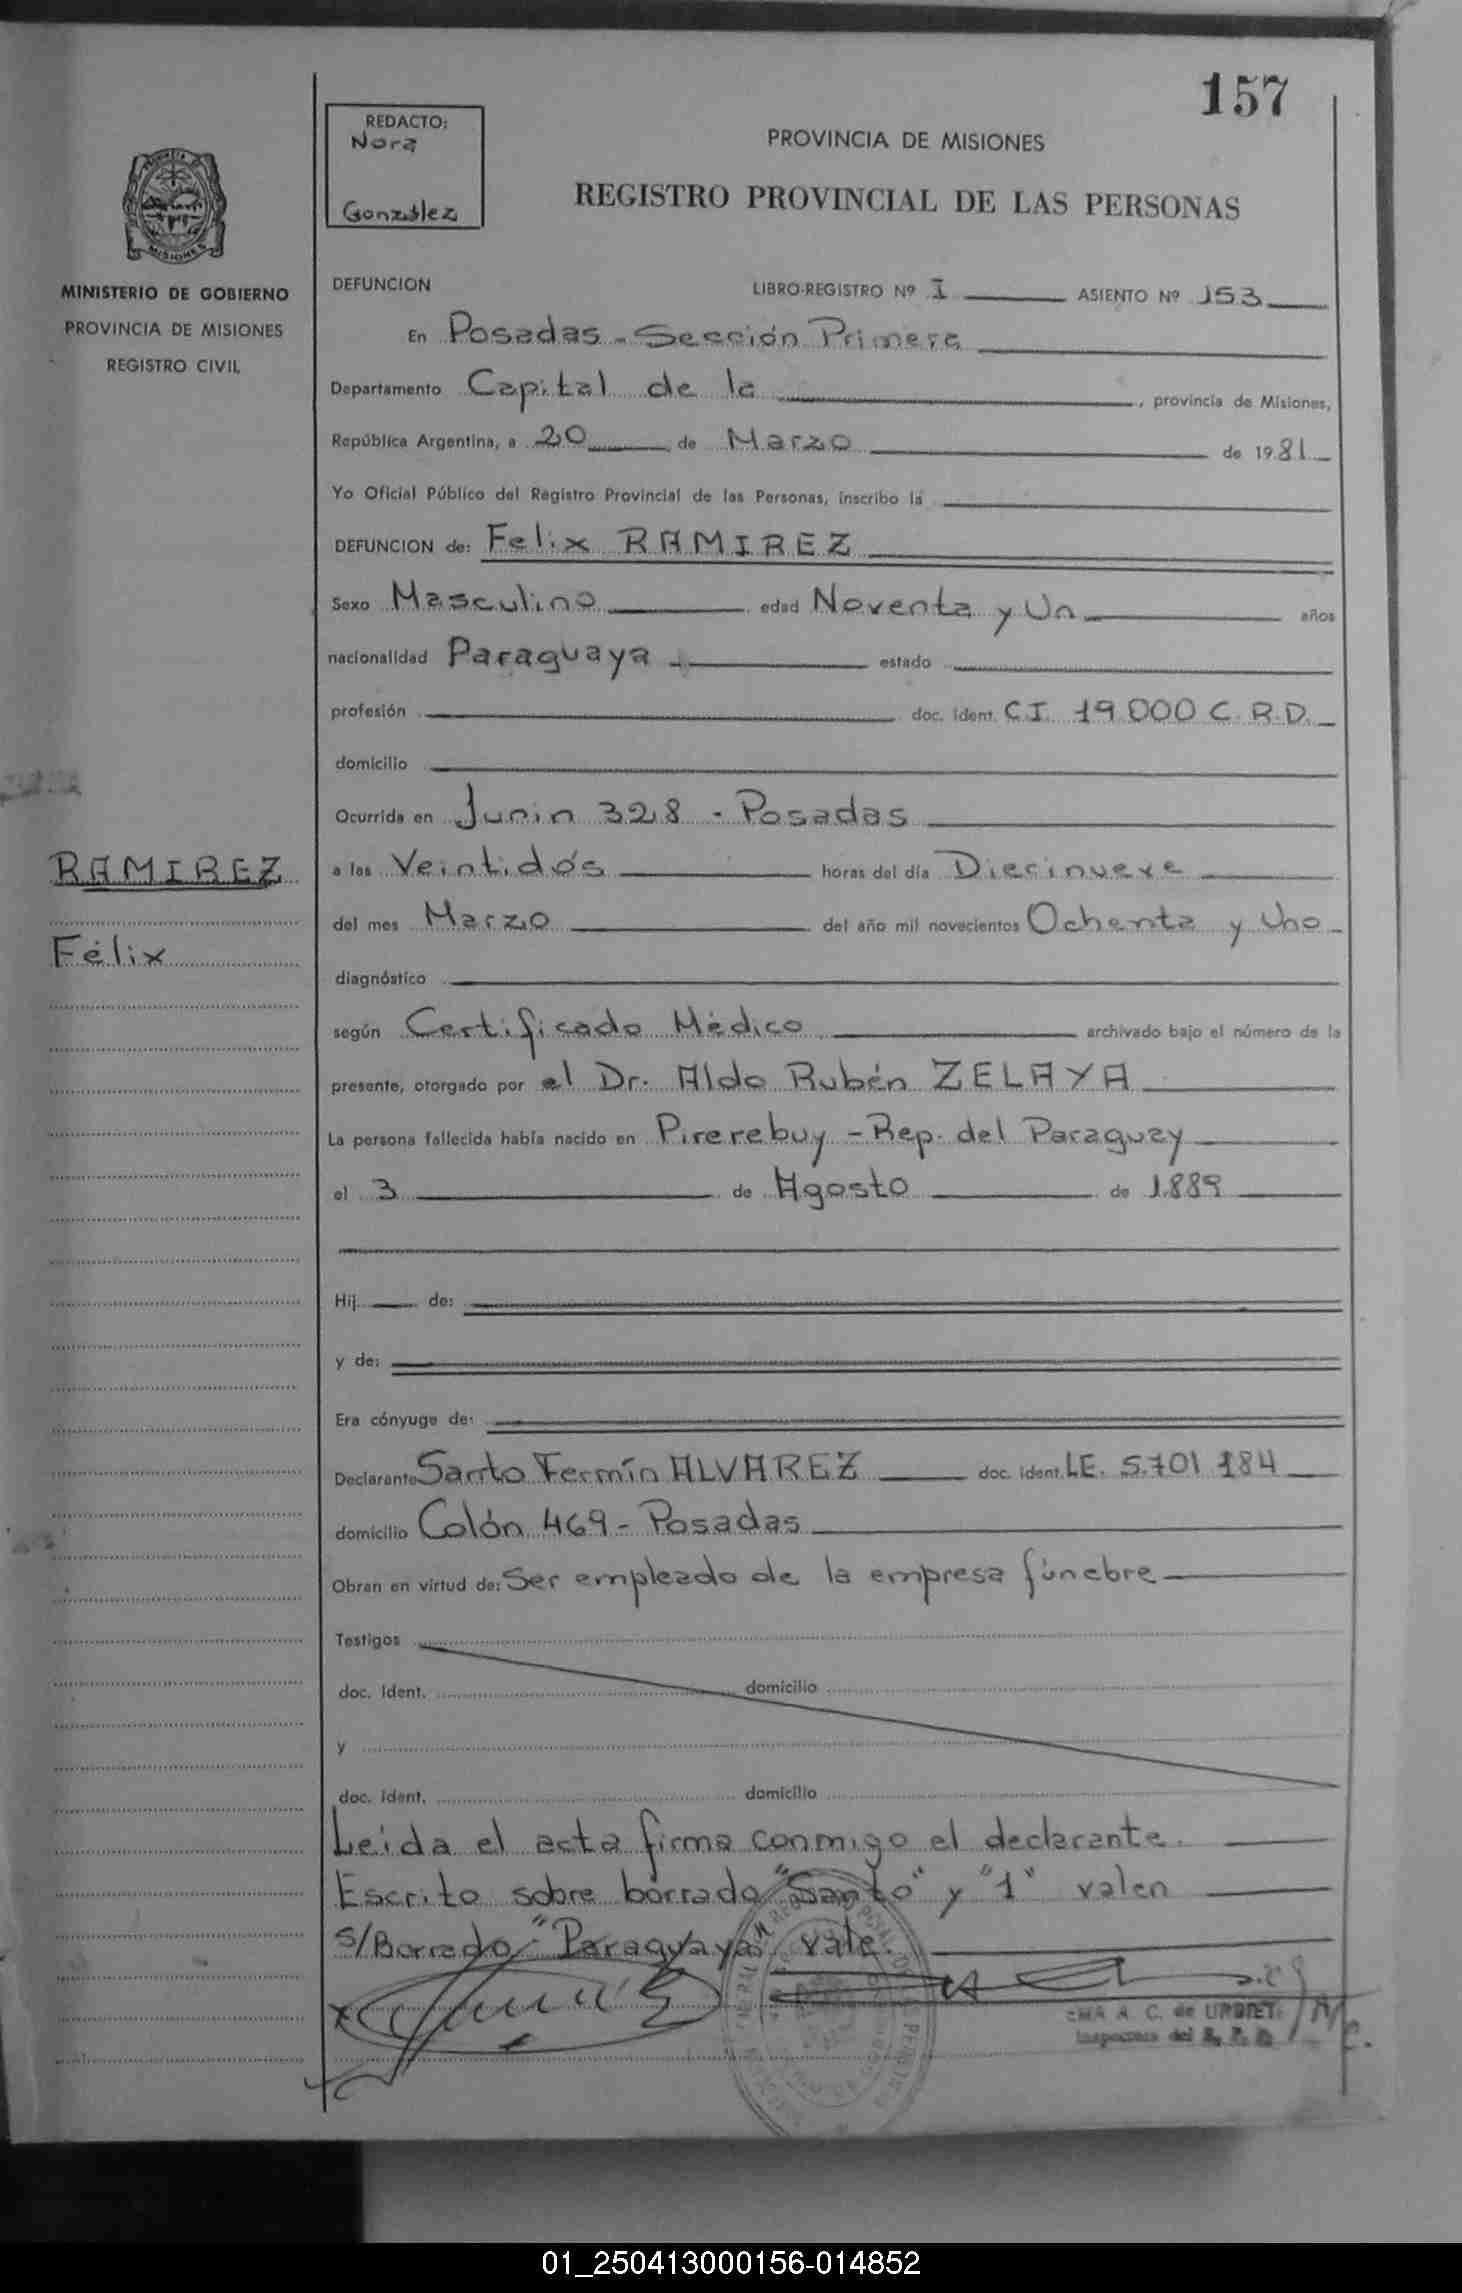 157
REDACTO:
Nora
González
PROVINCIA DE MISIONES
REGISTRO PROVINCIAL DE LAS PERSONAS
MISIONES
MINISTERIO DE GOBIERNO
PROVINCIA DE MISIONES
REGISTRO CIVIL
DEFUNCION LIBRO-REGISTRO Nº I ASIENTO Nº 153
En Posadas - Sección Primera
Departamento Capital de la , provincia de Misiones,
República Argentina, a 20 de Marzo de 1981
Yo Oficial Público del Registro Provincial de las Personas, inscribo la
DEFUNCION de: Felix RAMIREZ
Sexo Masculino edad Noventa y Un años
nacionalidad Paraguaya estado
profesión doc. ident. C.I. 19.000 C.R.D.
domicilio
Ocurrida en Junin 328 - Posadas
RAMIREZ
Félix
a las Veintidós horas del día Diecinueve
del mes Marzo del año mil novecientos Ochenta y Uno
diagnóstico
según Certificado Médico archivado bajo el número de la
presente, otorgado por el Dr. Aldo Rubén ZELAYA
La persona fallecida había nacido en Pirerebuy - Rep. del Paraguay
el 3 de Agosto de 1889
Hij de:
y de:
Era cónyuge de:
Declarante Santo Fermín ALVAREZ doc. ident. LE. 5.701.184
domicilio Colón 469 - Posadas
Obran en virtud de: Ser empleado de la empresa fúnebre
Testigos
doc. ident. domicilio
y
doc. ident. domicilio
Leida el acta firma conmigo el declarante.
Escrito sobre borrado "Santo" y "1" valen
S/Borrado "Paraguaya" vale.
EMA A. C. de URDIET
Inspectora del R. P. P.
01_250413000156-014852